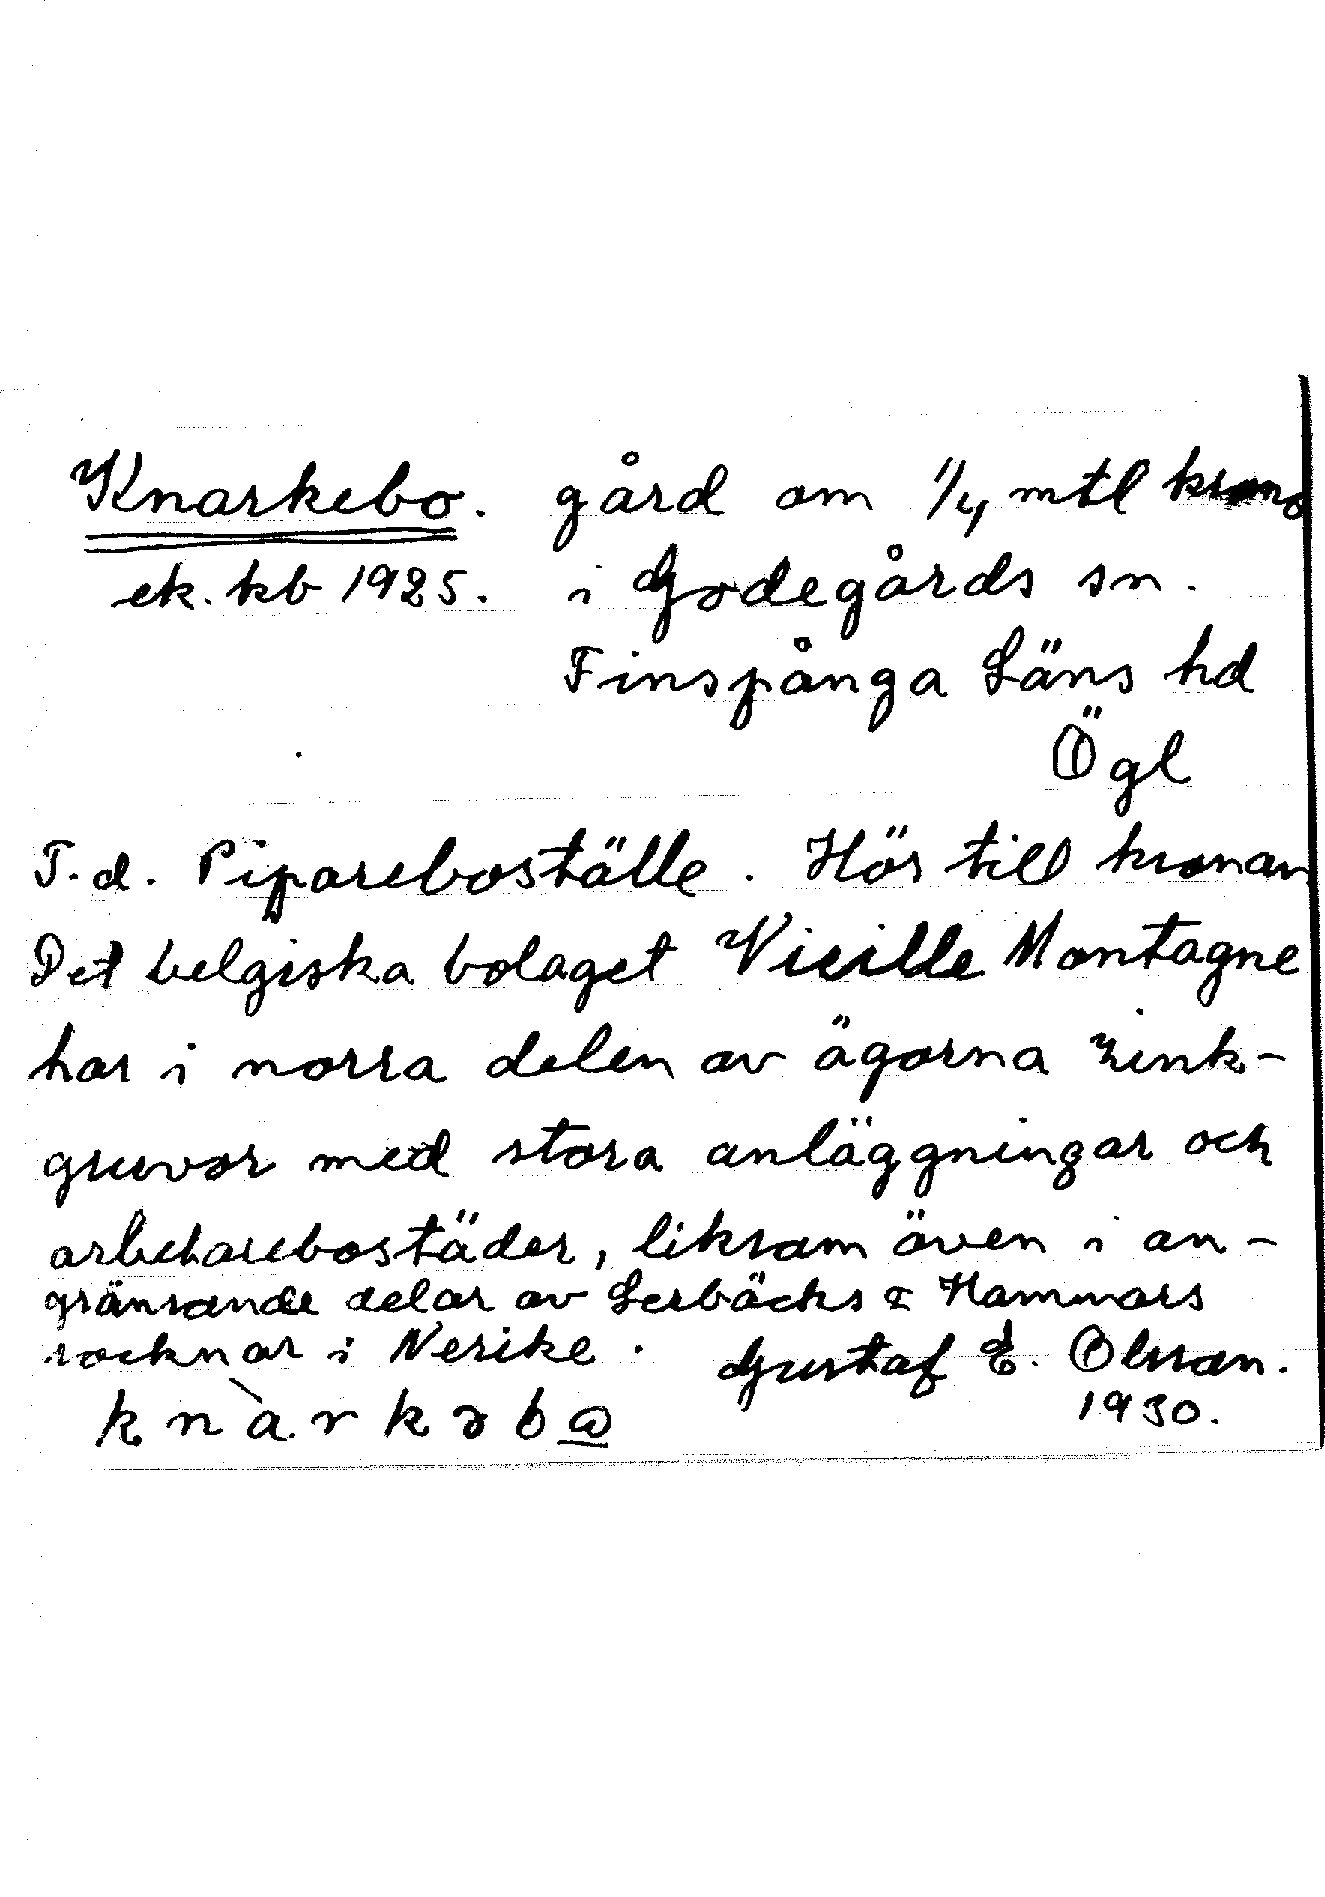 Knarkebo. gård om 1/4 mtl krono
ek. kb 1925. i Godegårds sn.
Finspånga Läns hd
Ögl
F.d. Pipareboställe. Hör till kronan
Det belgiska bolaget Vieille Montagne
har i norra delen av ägorna zink-
gruvor med stora anläggningar och
arbetarebostäder, liksom även i an-
gränsande delar av Lerbäcks & Hammars
socknar i Nerike. Gustaf E. Olsson.
knàrkəbω 1930.